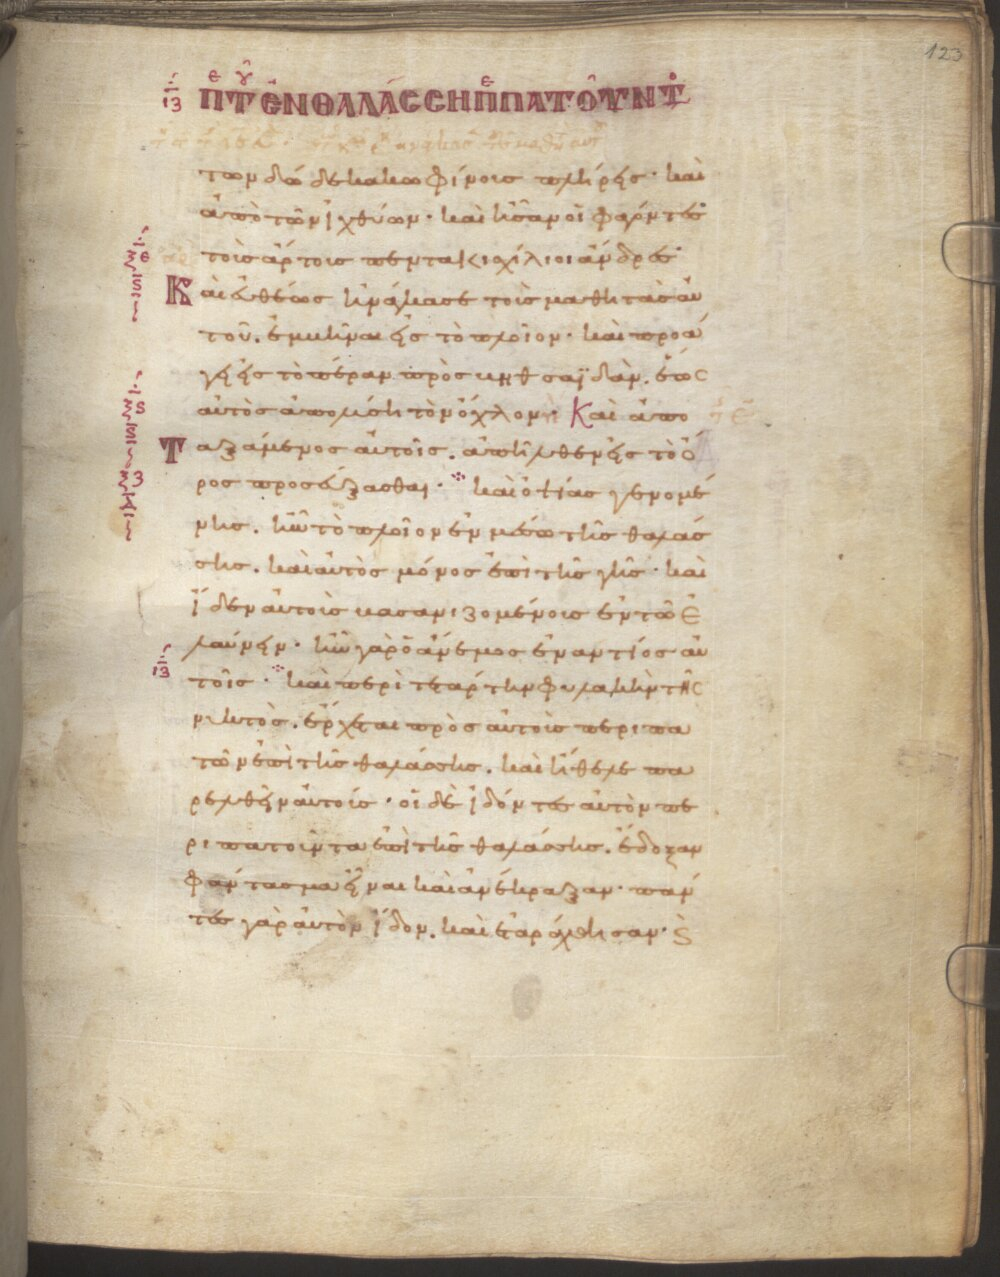 123
ΙΖ ΠΤ ἘΝ ΘΑΛΑΣΣΗ ΠΠΑΤΟΥΝΤ
των δώδεκα κωφίνοισ πλήρεις· καὶ
ἀπὸ τῶν ἰχθύων· καὶ ἦσαν οἱ φαγόντες
τοὺσ ἄρτουσ πεντακισχίλιοι ἄνδρες·
Καὶ εὐθέως ἠνάγκασε τοὺσ μαθητὰσ αὐ
τοῦ. ἐμβῆναι εἰς τὸ πλοῖον· καὶ προά
γειν εἰς τὸ πέραν πρὸς βηθσαϊδάν. ἕως
αὐτὸς ἀπολύσῃ τὸν ὄχλον· Καὶ ἀπο
Ταξάμενος αὐτοῖς. ἀπῆλθεν εἰς τὸ ὄ
ρος προσεύξασθαι· καὶ ὀψίας γενομέ
νης. ἦν τὸ πλοῖον ἐν μέσω τῆς θαλάσ
σης. καὶ αὐτὸς μόνος ἐπὶ τῆς γῆς· καὶ
ἴδεν αὐτοὺς βασανιζομένους ἐν τῶ ἐ
λαύνειν· ἦν γὰρ ὁ ἄνεμος ἐναντίος αὐ
τοῖς· καὶ περὶ τετάρτην φυλακὴν τῆς
νυκτὸς. ἔρχεται πρὸς αὐτοὺς περιπα
τῶν ἐπὶ τῆς θαλάσσης. καὶ ἤθελε πα
ρελθεῖν αὐτούς· οἱ δὲ ἰδόντες αὐτὸν πε
ριπατοῦντα ἐπὶ τῆς θαλάσσης. ἔδοξαν
φάντασμα εἶναι καὶ ἀνέκραξαν· πάν
τες γὰρ αὐτὸν ἴδον. καὶ ἐταράχθησαν·